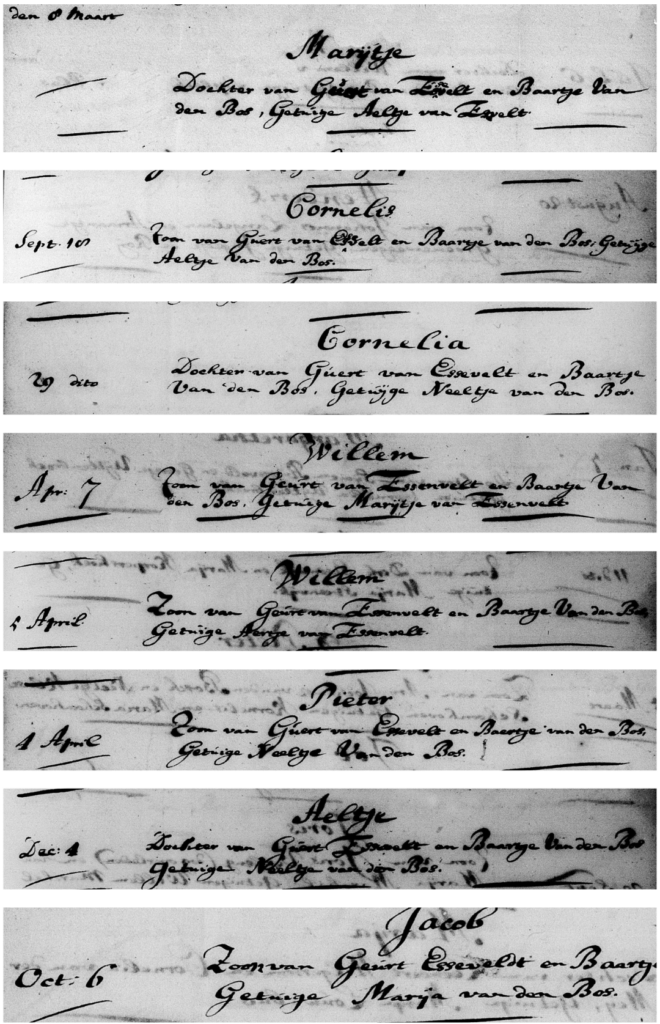 den 8 Maart
Marijtje
Dochter van Geurt van Essvelt en Baartje Van
den Bos, Getuige Aeltje van Essvelt.
Cornelis
Sept. 18 Zoon van Guert van Esselt en Baartje van den Bos. Getuijge
Aeltje Van den Bos.
Cornelia
29 dito Dochter van Guert van Essevelt en Baartje
Van den Bos, Getuijge Neeltje van den Bos.
Willem
Apr: 7 Zoon van Geurt van Essenvelt en Baartje Van
den Bos. Getuige Marijtje van Essenvelt
Willem
April Zoon van Geurt van Essenvelt en Baartje Van den Bos
Getuige Aertje van Essenvelt.
Pieter
4 April Zoon van Guert van Essevelt en Baertje van den Bos,
Getuige Neeltje Van den Bos.
Aeltje
Dec: 4 Dochter van Guert Essevelt en Baartje Van den Bos
Getuige Neeltje van den Bos.
Jacob
Oct: 6 Zoon van Geurt Esseveldt en Baartje
Getuige Marija van den Bos.